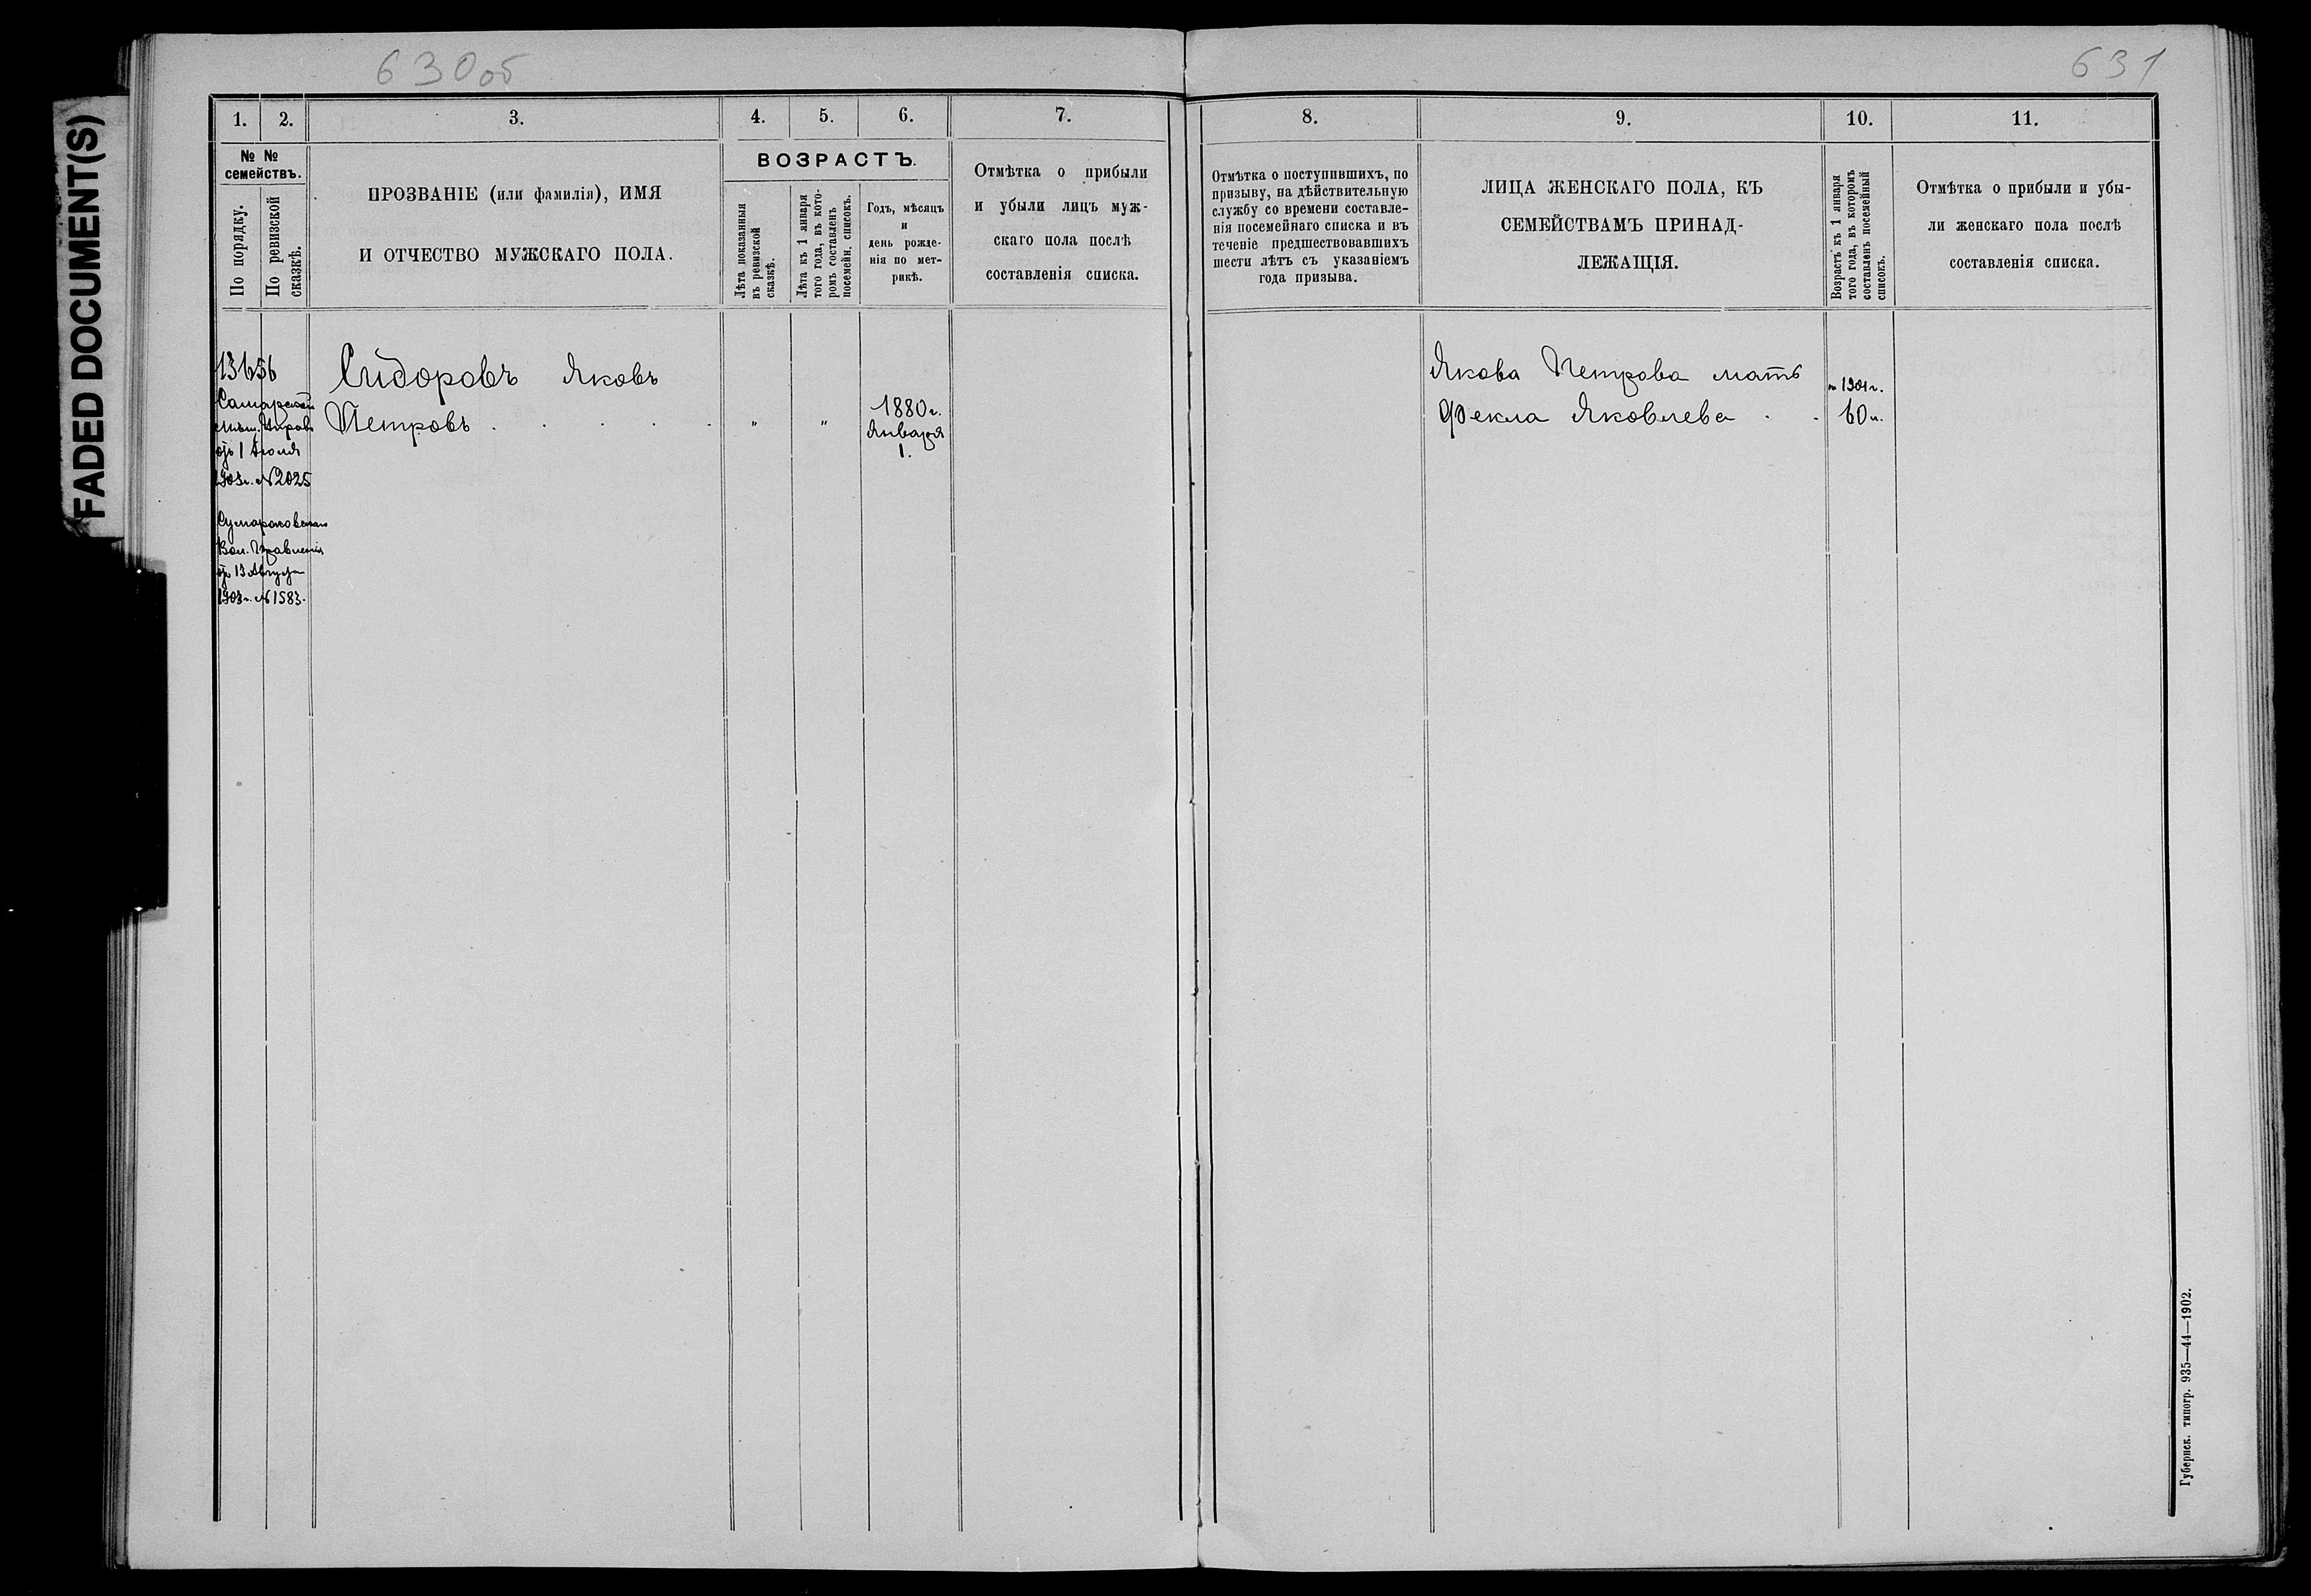 FADED DOCUMENT(S)
630об
631
1.
2.
3.
4.
5.
6.
7.
№ №
семействъ.
По порядку.
По ревизской
сказкѣ.
ПРОЗВАНІЕ (или фамилія), ИМЯ
И ОТЧЕСТВО МУЖСКАГО ПОЛА.
ВОЗРАСТЪ.
Лѣта показанныя
въ ревизской
сказкѣ.
Лѣта къ 1 января
того года, въ кото-
ромъ составленъ
посемейн. списокъ.
Годъ, мѣсяцъ
и
день рожде-
нія по мет-
рикѣ.
Отмѣтка о прибыли
и убыли лицъ муж-
скаго пола послѣ
составленія списка.
13656
Самарской
мѣщ. Управы
отъ 1 Іюля
1903г. №2025
Сумароковскаго
Вол. Правленія
отъ 13 Августа
1903г. №1583.
Сидоровъ Яковъ
Петровъ . . . . .
"
"
1880г.
Января
1.
8.
9.
10.
11.
Отмѣтка о поступившихъ, по
призыву, на дѣйствительную
службу со времени составле-
нія посемейнаго списка и въ
теченіе предшествовавшихъ
шести лѣтъ съ указаніемъ
года призыва.
ЛИЦА ЖЕНСКАГО ПОЛА, КЪ
СЕМЕЙСТВАМЪ ПРИНАД-
ЛЕЖАЩІЯ.
Возрастъ къ 1 января
того года, въ которомъ
составленъ посемейный
списокъ.
Отмѣтка о прибыли и убы-
ли женскаго пола послѣ
составленія списка.
Якова Петрова мать
Фекла Яковлева . .
1901г.
60л.
Губернск. типогр. 935—44—1902.